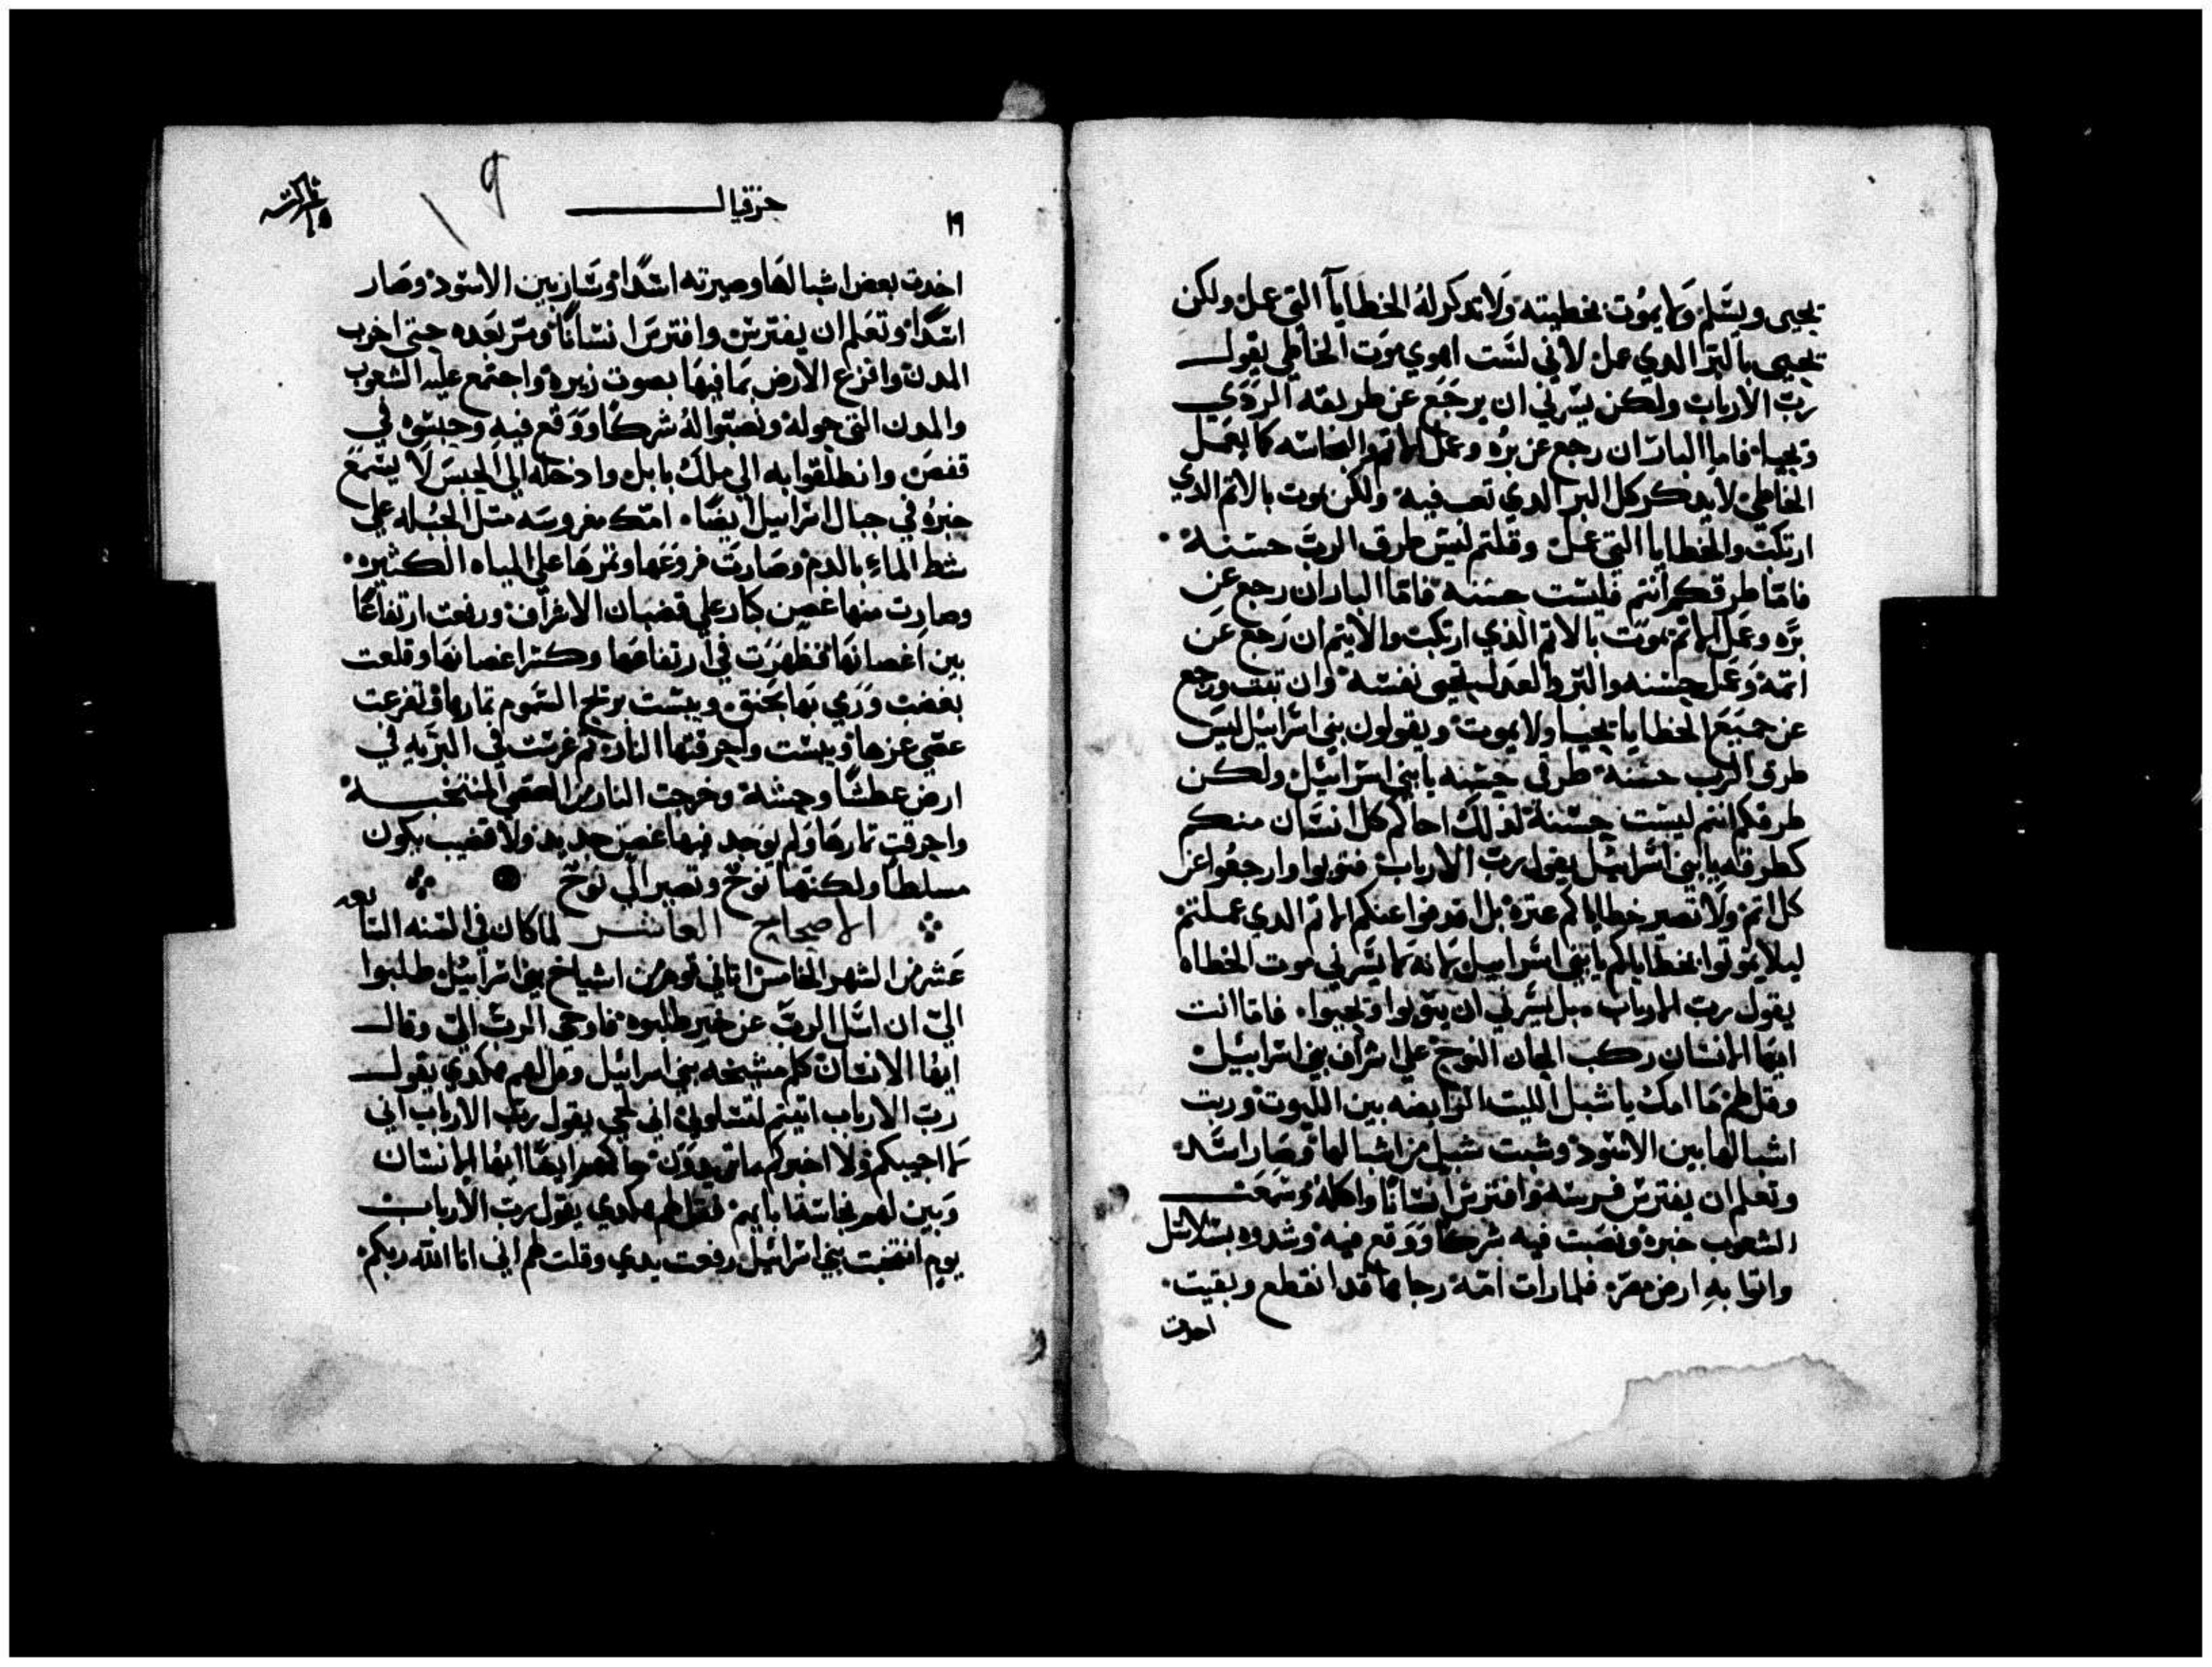 يحيى ويسلم ولا يموت بخطيته ولا تدكر له الخطايا التي عمل ولكن
يحيى بالبر الدي عمل لاني لست اهوي موت الخاطي يقول
رب الارباب ولكن يسرني ان يرجع عن طريقه الردي
ويحيا فاما البار ان رجع عن بره وعمل الاثم والنجاسه كما يعمل
الخاطي لا يدكر كل البر الدي تعب فيه ولكن يموت بالاثم الدي
ارتكب والخطايا التي عمل وقلتم ليس طرق الرب حسنة
فاما طرقكم انتم فليست حسنه فاما البار ان رجع عن
بره وعمل الاثم يموت بالاثم الذي ارتكب والاثيم ان رجع عن
اثمه وعمل حسنه والبر والعدل يحيى نفسه وان تاب ورجع
عن جميع الخطايا يحيا ولا يموت ويقولون بني اسراييل ليس
طرق الرب حسنة طرقي حسنه يا بني اسراييل ولكن
طرقكم انتم ليست حسنة لذلك احاكم كل انسان منكم
كطرقه يا بني اسراييل يقول رب الارباب فتوبوا وارجعوا عن
كل اثم ولا تصير خطاياكم عثرة بل اقدفوا عنكم الاثم الدي عملتم
ليلا تموتوا بخطاياكم يا بني اسراييل لانه لا يسرني موت الخطاه
يقول رب الارباب بل يسرني ان يتوبوا ويحيوا فاما انت
ايها الانسان ركب الحان النوح علي اشراف بني اسراييل
وقل لهم ما امك يا شبل الليث الرابضه بين الليوث وربت
اشبالها بين الاسود وشبت شبل من اشبالها وصار اسد
وتعلم ان يفترس فريسة وافترس انسانا واكله وسمعت
الشعوب خبره ونصبت فيه شركا ووقع فيه وشدوه بسلاسل
واتوا به ارض مصر فلما رات امه رجاها قد انقطع وبقيت
اخدت
١٦
حزقيال
٩
اخدت بعض اشبالها وصيرته اسدا وسار بين الاسود وصار
اسدا وتعلم ان يفترس وافترس انسانا وسر بعده حتي اخرب
المدن وافزع الارض بما فيها بصوت زيره واجتمع عليه الشعوب
والمدن التي حوله ونصبوا له شركا ووقع فيه وحبسوه في
قفص وانطلقوا به الي ملك بابل وادخله الي الحبس لا يسمع
خبره في جبال اسراييل ايضا امك مغروسه مثل الحبله علي
شط الماء بالدم وصارت فروعها وثمرها علي المياه الكثيره
وصارت منها غصن كار علي قضبان الاشراف ورفعت ارتفاعا
بين اغصانها فظهرت في ارتفاعها وكثر اغصانها وقلعت
بغضب ورمي بها بحنق ويبست بريح السموم ثمارها وتفرعت
عصي عزها ويبست واحرقتها النار ثم غرست في البريه في
ارض عطشا وحشة وخرجت النار من العصي المنتخبة
واحرقت ثمارها ولم يوجد فيها غصن جديد ولا قضيب يكون
مسلطا ولكنها نوح وتصير الي نوح
الاصحاح العاشر لما كان في السنه التا بعه
عشر من الشهر الخامس اتاني قوم من اشياخ بني اسراييل طلبوا
الي ان اسل الرب عن خبر طلبوه فاوحى الرب الي وقال
ايها الانسان كلم مشيخه بني اسراييل وقل لهم هكدي يقول
رب الارباب اتيتم لتسلوني اني لحي يقول رب الارباب اني
لا اجيبكم ولا اخبركم ما تريدون حاكمهم ايضا ايها الانسان
وبين لهم نجاسة ابايهم فقل لهم هكدي يقول رب الارباب
يوم انتخبت بني اسراييل رفعت يدي وقلت لهم اني انا الله ربكم